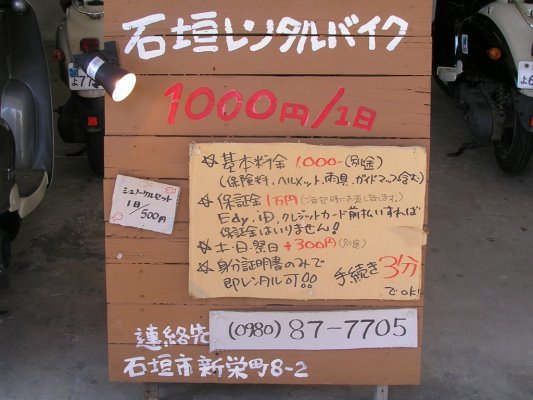 石垣レンタルバイク
1000円/1日
☆基本料金 1,000-(別途)
(保険料、ヘルメット、雨具、ガイドマップ含む)
☆保証金1万円(ご返却時にお返し致します。)
Edy、iD、クレジットカード前払いすれば
保証金はいりません!
☆土・日・祭日 +300円(別途)
☆身分証明書のみで
即レンタル可!!
手続き3分
でok!!
シュノーケルセット
1日/500円
連絡先 (0980) 87-7705
石垣市新栄町8-2